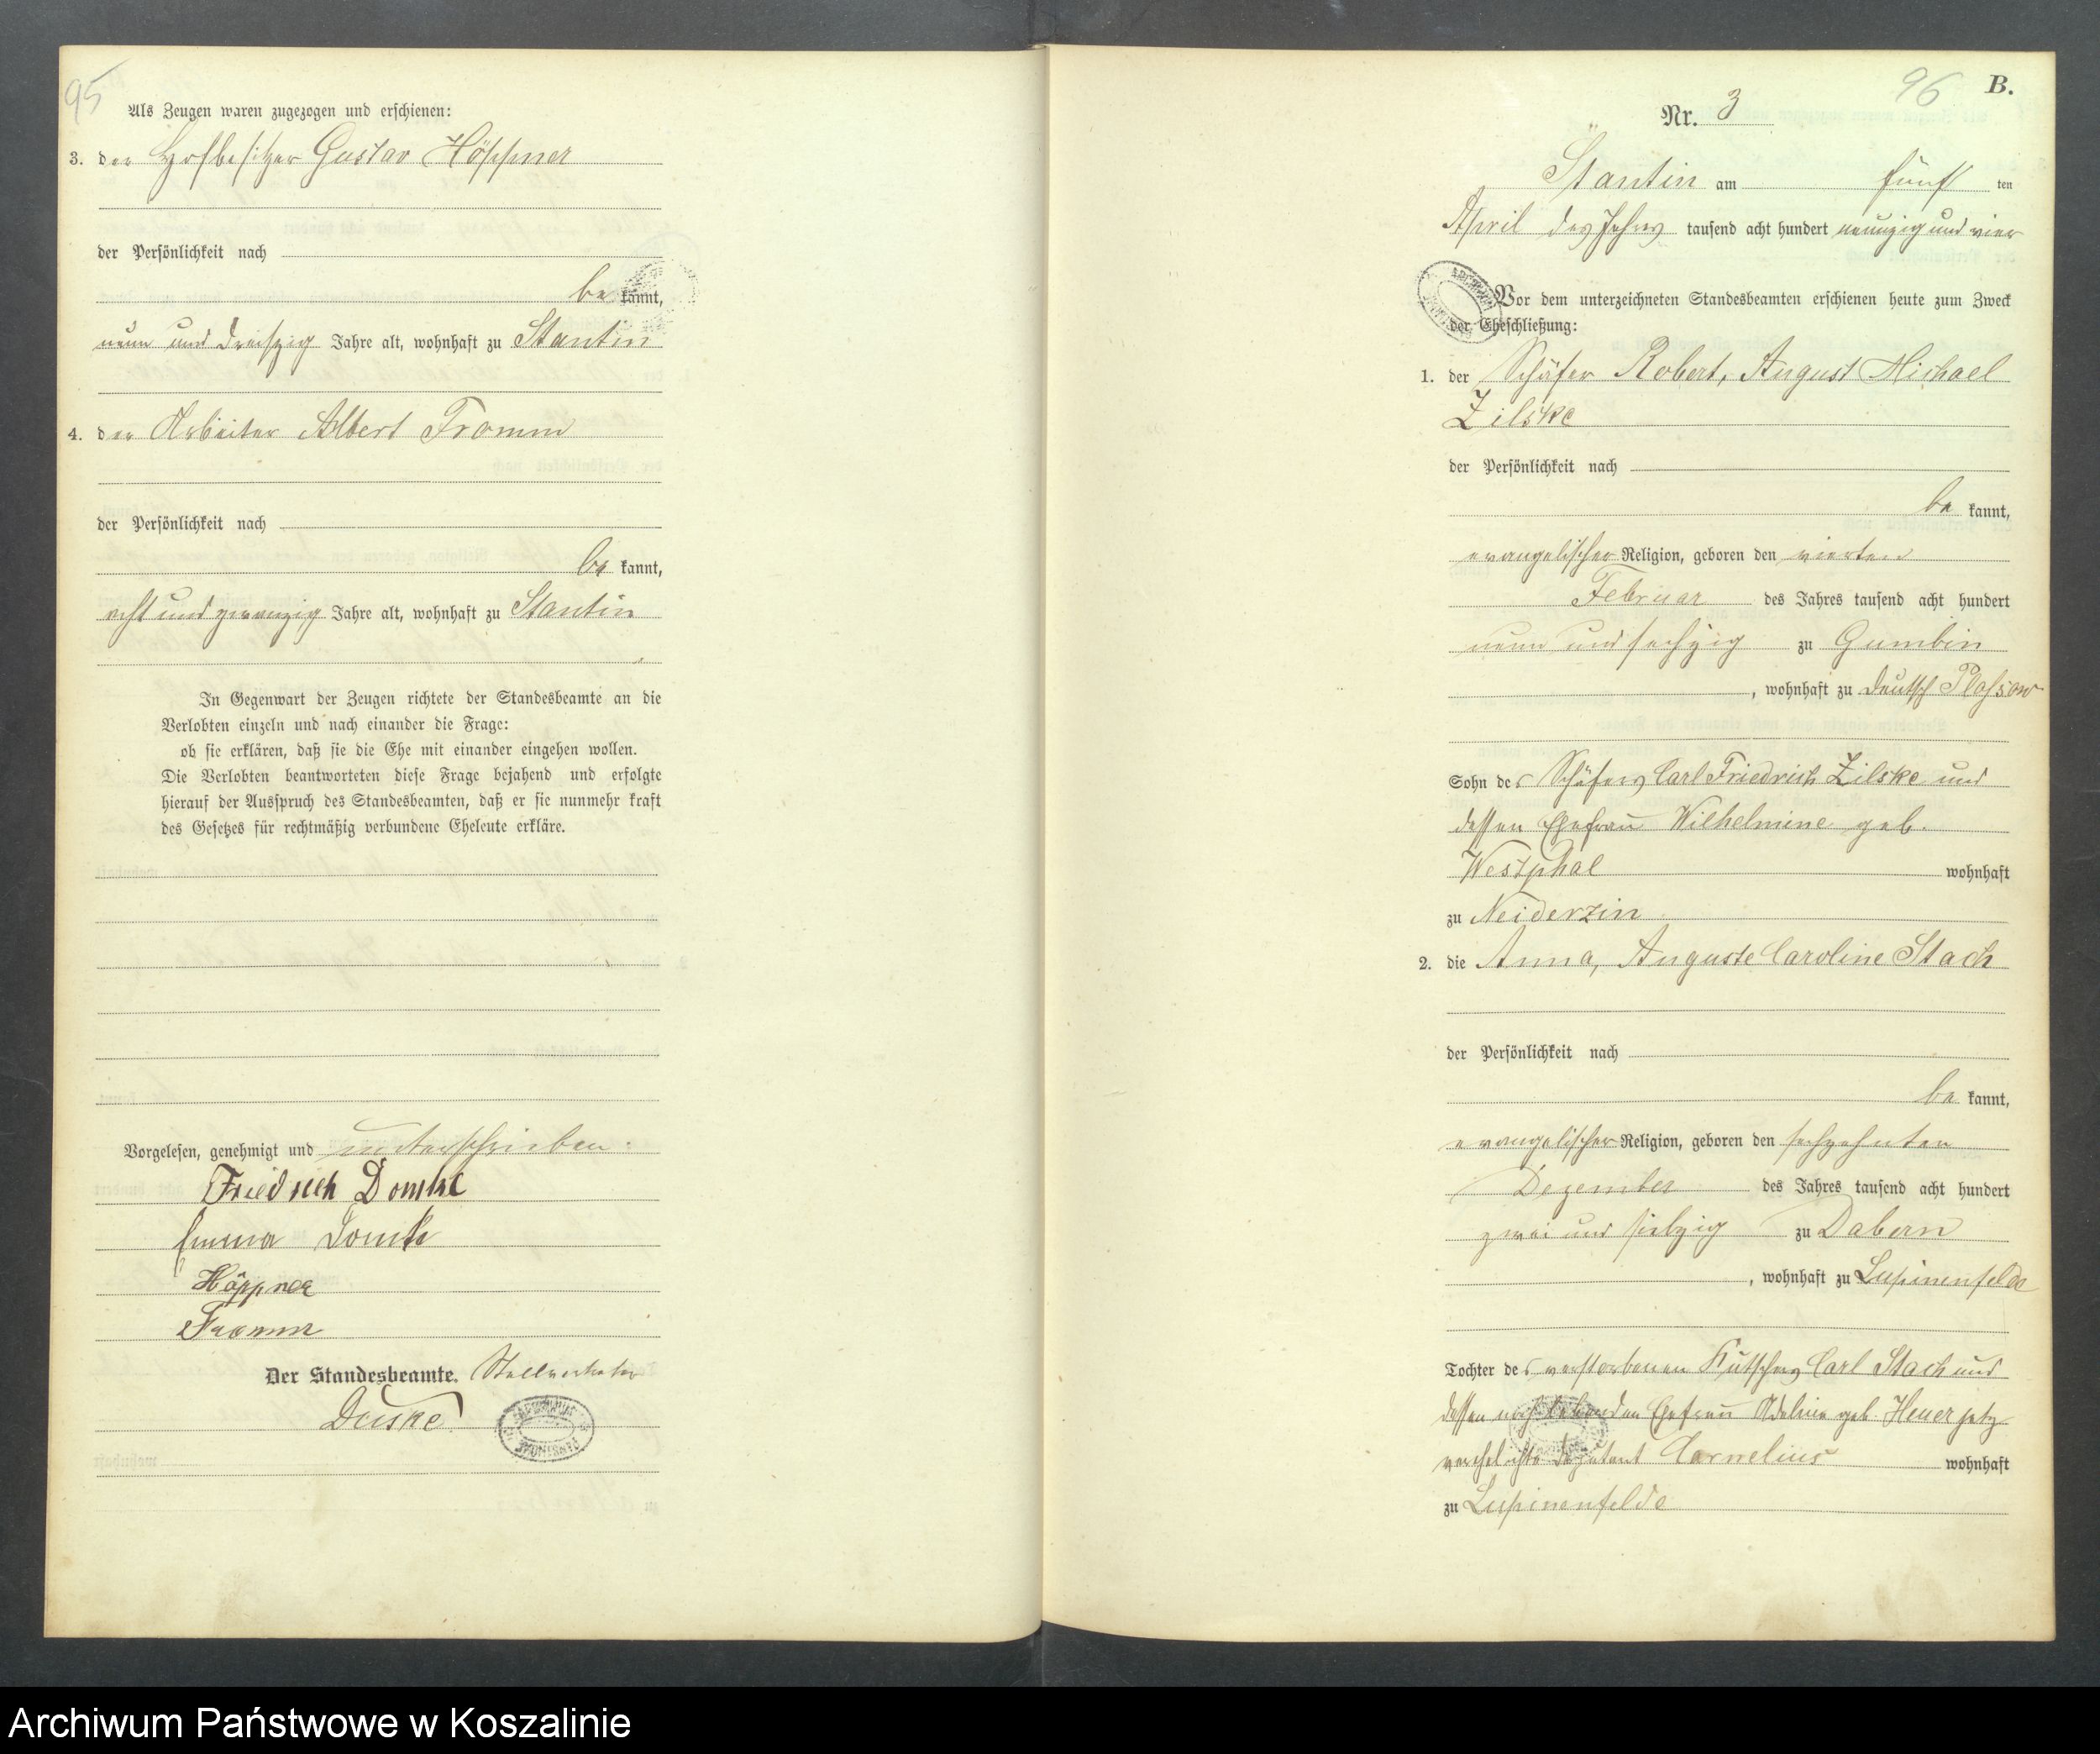 95
Als Zeugen waren zugezogen und erschienen:
3. der Hofbesitzer Gustav Höppner
der Persönlichkeit nach
be kannt,
neun und dreißig Jahre alt, wohnhaft zu Stantin
4. der Arbeiter Albert Fromm
der Persönlichkeit nach
be kannt,
acht und zwanzig Jahre alt, wohnhaft zu Stantin
In Gegenwart der Zeugen richtete der Standesbeamte an die
Verlobten einzeln und nach einander die Frage:
ob sie erklären, daß sie die Ehe mit einander eingehen wollen.
Die Verlobten beantworteten diese Frage bejahend und erfolgte
hierauf der Ausspruch des Standesbeamten, daß er sie nunmehr kraft
des Gesetzes für rechtmäßig verbundene Eheleute erkläre.
Vorgelesen, genehmigt und unterschrieben.
Friedrich Domke
Emma Domke
Höppner
Fromm
Der Standesbeamte. Stellvertreter
Duske
96 B.
Nr. 3
Stantin am fünf ten
April des Jahres tausend acht hundert neunzig und vier
Vor dem unterzeichneten Standesbeamten erschienen heute zum Zweck
der Eheschließung:
1. der Schäfer Robert, August Michael
Zilske
der Persönlichkeit nach
be kannt,
evangelischer Religion, geboren den vierten
Februar des Jahres tausend acht hundert
neun und sechzig zu Gumbin
, wohnhaft zu deutsch Plassow
Sohn des Schäfers Carl Friedrich Zilske und
dessen Ehefrau Wilhelmine geb.
Westphal wohnhaft
zu Neiderzin
2. die Anna, Auguste Caroline Stach
der Persönlichkeit nach
be kannt,
evangelischer Religion, geboren den sechzehnten
Dezember des Jahres tausend acht hundert
zwei und siebzig zu Dabern
, wohnhaft zu Lupinenfelde
Tochter des verstorbenen Kutschers Carl Stach und
dessen noch lebenden Ehefrau Adeline geb. Heuer jetz
verehelichte Deputant Cornelius wohnhaft
zu Lupinenfelde
Archiwum Państwowe w Koszalinie